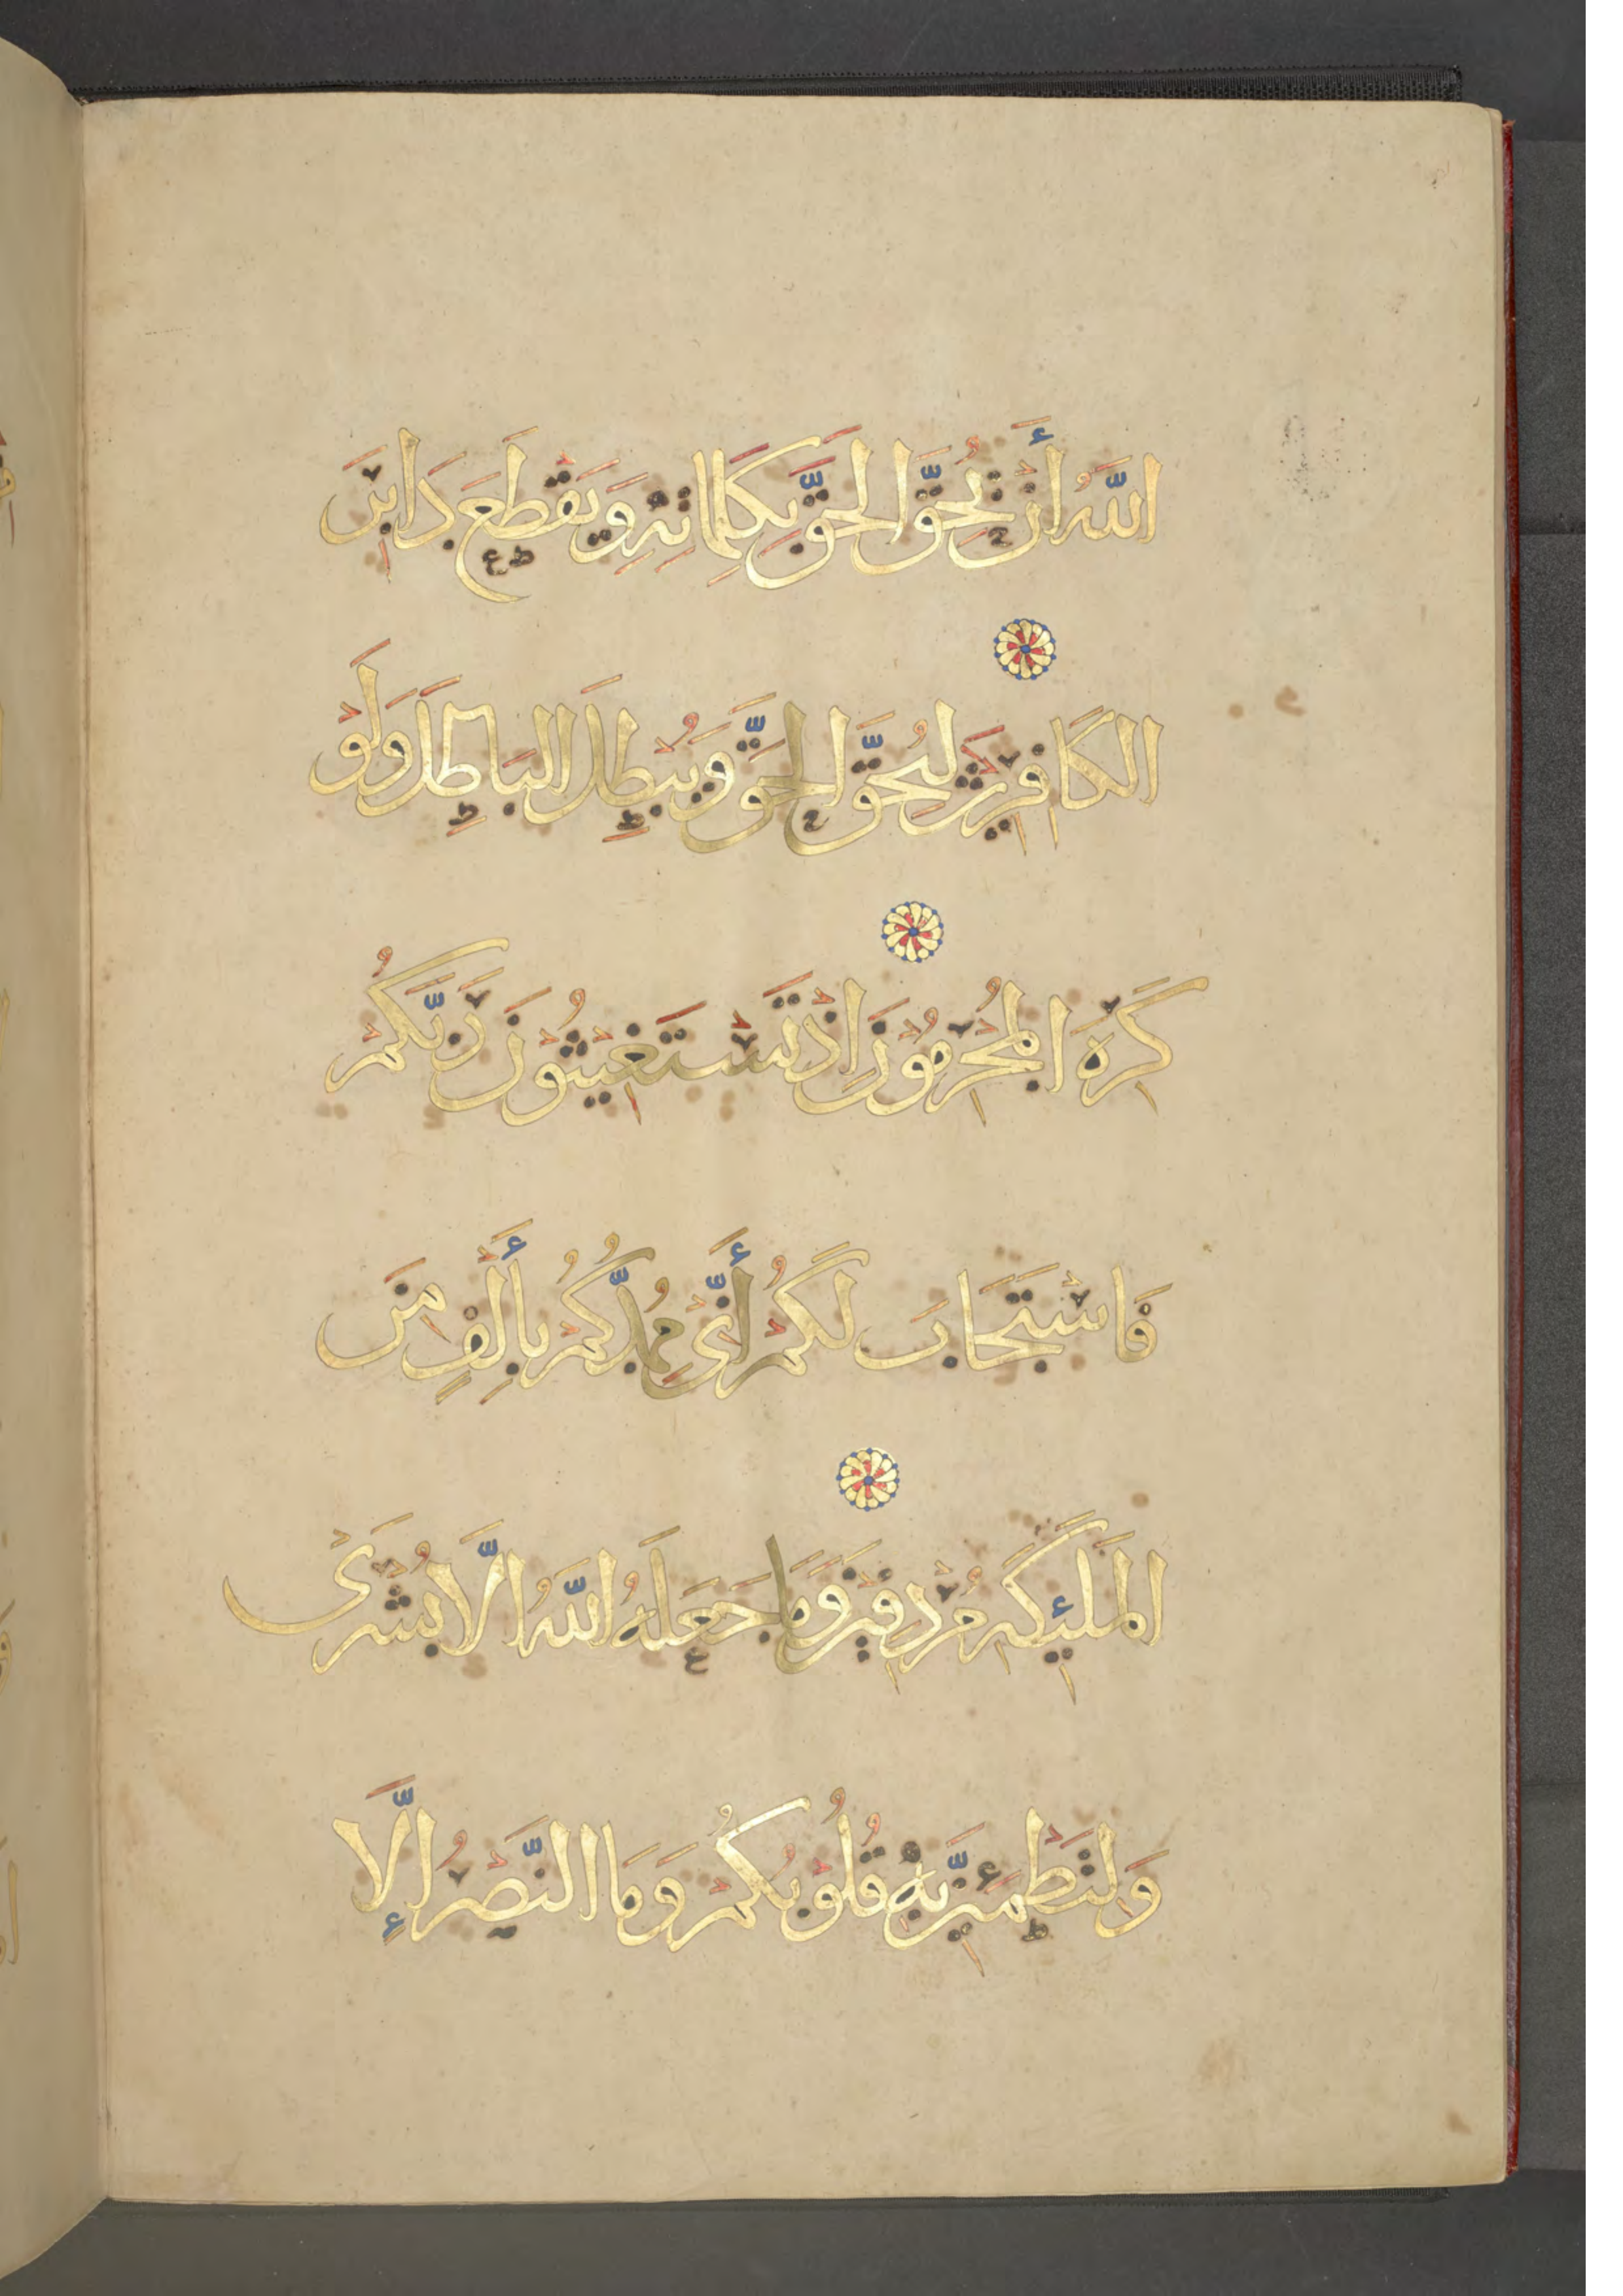 اللَّهُ أَنْ يُحِقَّ الْحَقَّ بِكَلِمَاتِهِ وَيَقْطَعَ دَابِرَ
الكَافِرِينَ لِيُحِقَّ الْحَقَّ وَيُبْطِلَ البَاطِلَ وَلَوْ
كَرِهَ الْمُجْرِمُونَ اِذْ تَسْتَغِيثُونَ رَبَّكُمْ
فَاسْتَجَابَ لَكُمْ أَنِّي مُمِدُّكُمْ بِأَلْفٍ مِنَ
الْمَلَئِكَةِ مُرْدِفِينَ وَمَا جَعَلَهُ اللَّهُ اِلَّا بُشْرَى
وَلِتَطْمَئِنَّ بِهِ قُلُوبُكُمْ وَمَا النَّصْرُ إِلَّا